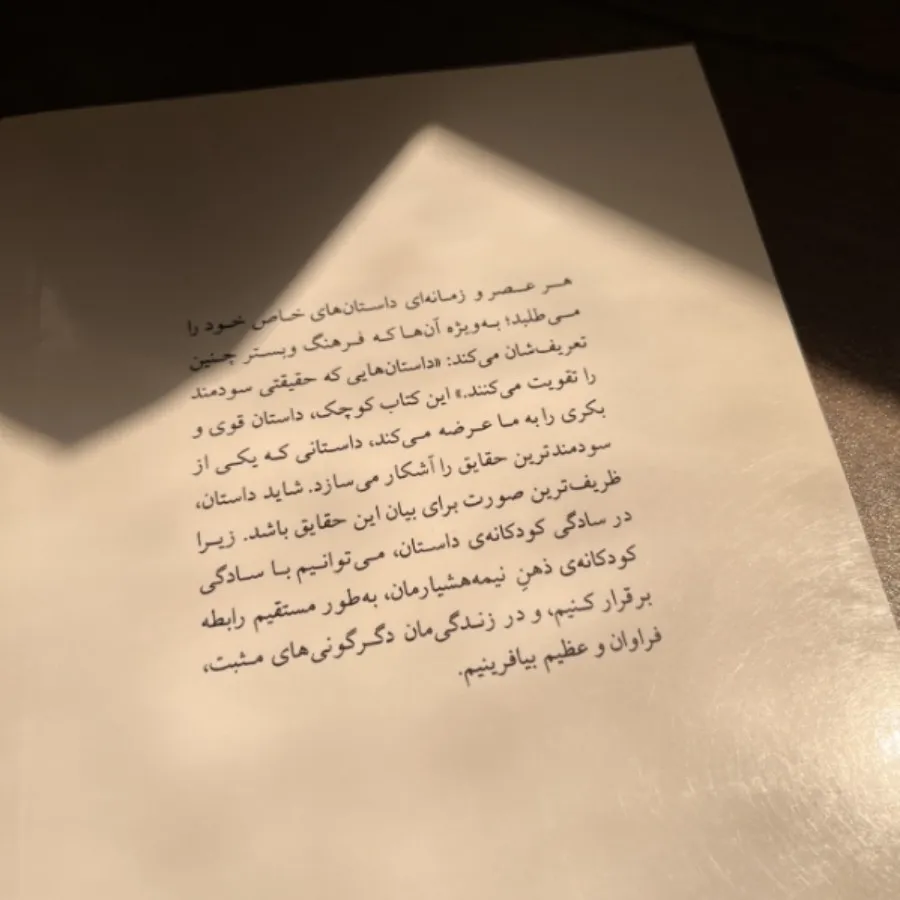 هر عصر و زمانه‌ای داستان‌های خاص خود را
می‌طلبد؛ به‌ویژه آن‌ها که فرهنگ وبستر چنین
تعریف‌شان می‌کند: «داستان‌هایی که حقیقتی سودمند
را تقویت می‌کنند.» این کتاب کوچک، داستان قوی و
بکری را به ما عرضه می‌کند، داستانی که یکی از
سودمندترین حقایق را آشکار می‌سازد. شاید داستان،
ظریف‌ترین صورت برای بیان این حقایق باشد. زیرا
در سادگی کودکانه‌ی داستان، می‌توانیم با سادگی
کودکانه‌ی ذهنِ نیمه‌هشیارمان، به‌طور مستقیم رابطه
برقرار کنیم، و در زندگی‌مان دگرگونی‌های مثبت،
فراوان و عظیم بیافرینیم.